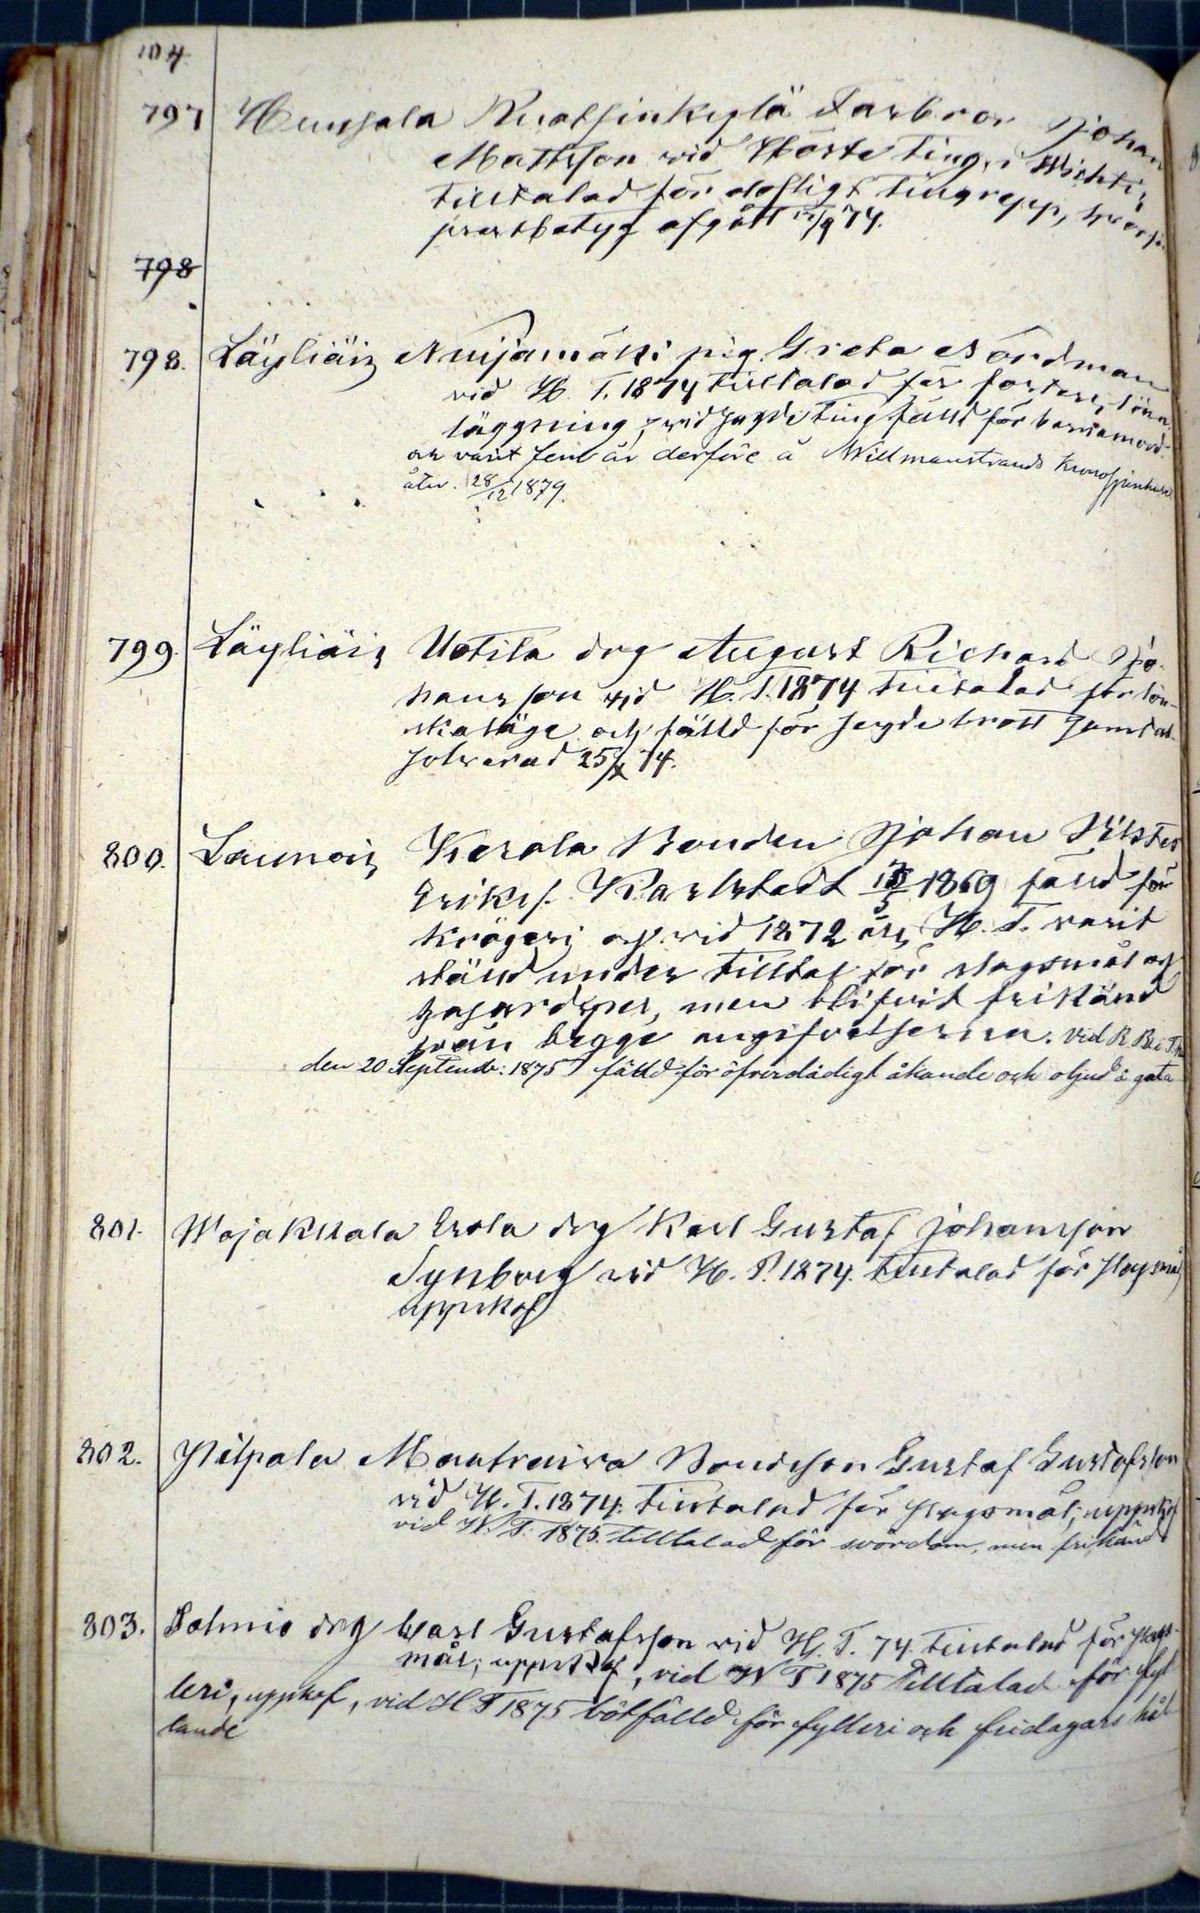 104.
797 Hunsala Ruotsinkylä Farbror Johan
Mattsson vid Höste Ting, i Wichtis
tilltalad för olofligt tingrepp,
prestbetyg afgått 17/9 74.
798
798. Läyliäis Nuijamäki pig. Greta Nordman
vid H. T. 1874 tilltalad för foster
läggning, vid Ting fälld för barnamord.
ar varit fem år derföre å Willmanstrands Kronospinhus
åter. 28/12 1879.
799. Läyliäis Uotila drg August Richard Jo-
hansson vid H. T. 1874 tilltalad för lön-
skaläge och fälld för
25/X 74.
800. Launois Kerola Bonden Johan Wikter
Eriks. Karlstedt 1869 fälld för
krögeri och vid 1872 års H. T. varit
ställd under tilltal för slagsmål och
men blifvit frikänd
från begge angifvelserna. vid R
den 20 Septemb: 1875 fälld för öfverdådigt åkande och oljud å gata
801. Wojakkala Erola drg Karl Gustaf Johansson
Synberg vid H. T. 1874. tilltalad för slagsmål
uppskof
802. Pilpala Mantraiva Bondeson Gustaf Gustafsson
vid H. T. 1874. tilltalad för slagsmål; uppskof
vid W. T. 1875. tilltalad för svordom, men frikänd
803. Salmis drg Carl Gustafsson vid H. T. 74 tilltalad för slags-
mål; uppskof, vid W T 1875 tilltalad för fyl
leri, uppkof, vid H T 1875 bötfälld för fylleri och fridagars hål
lande